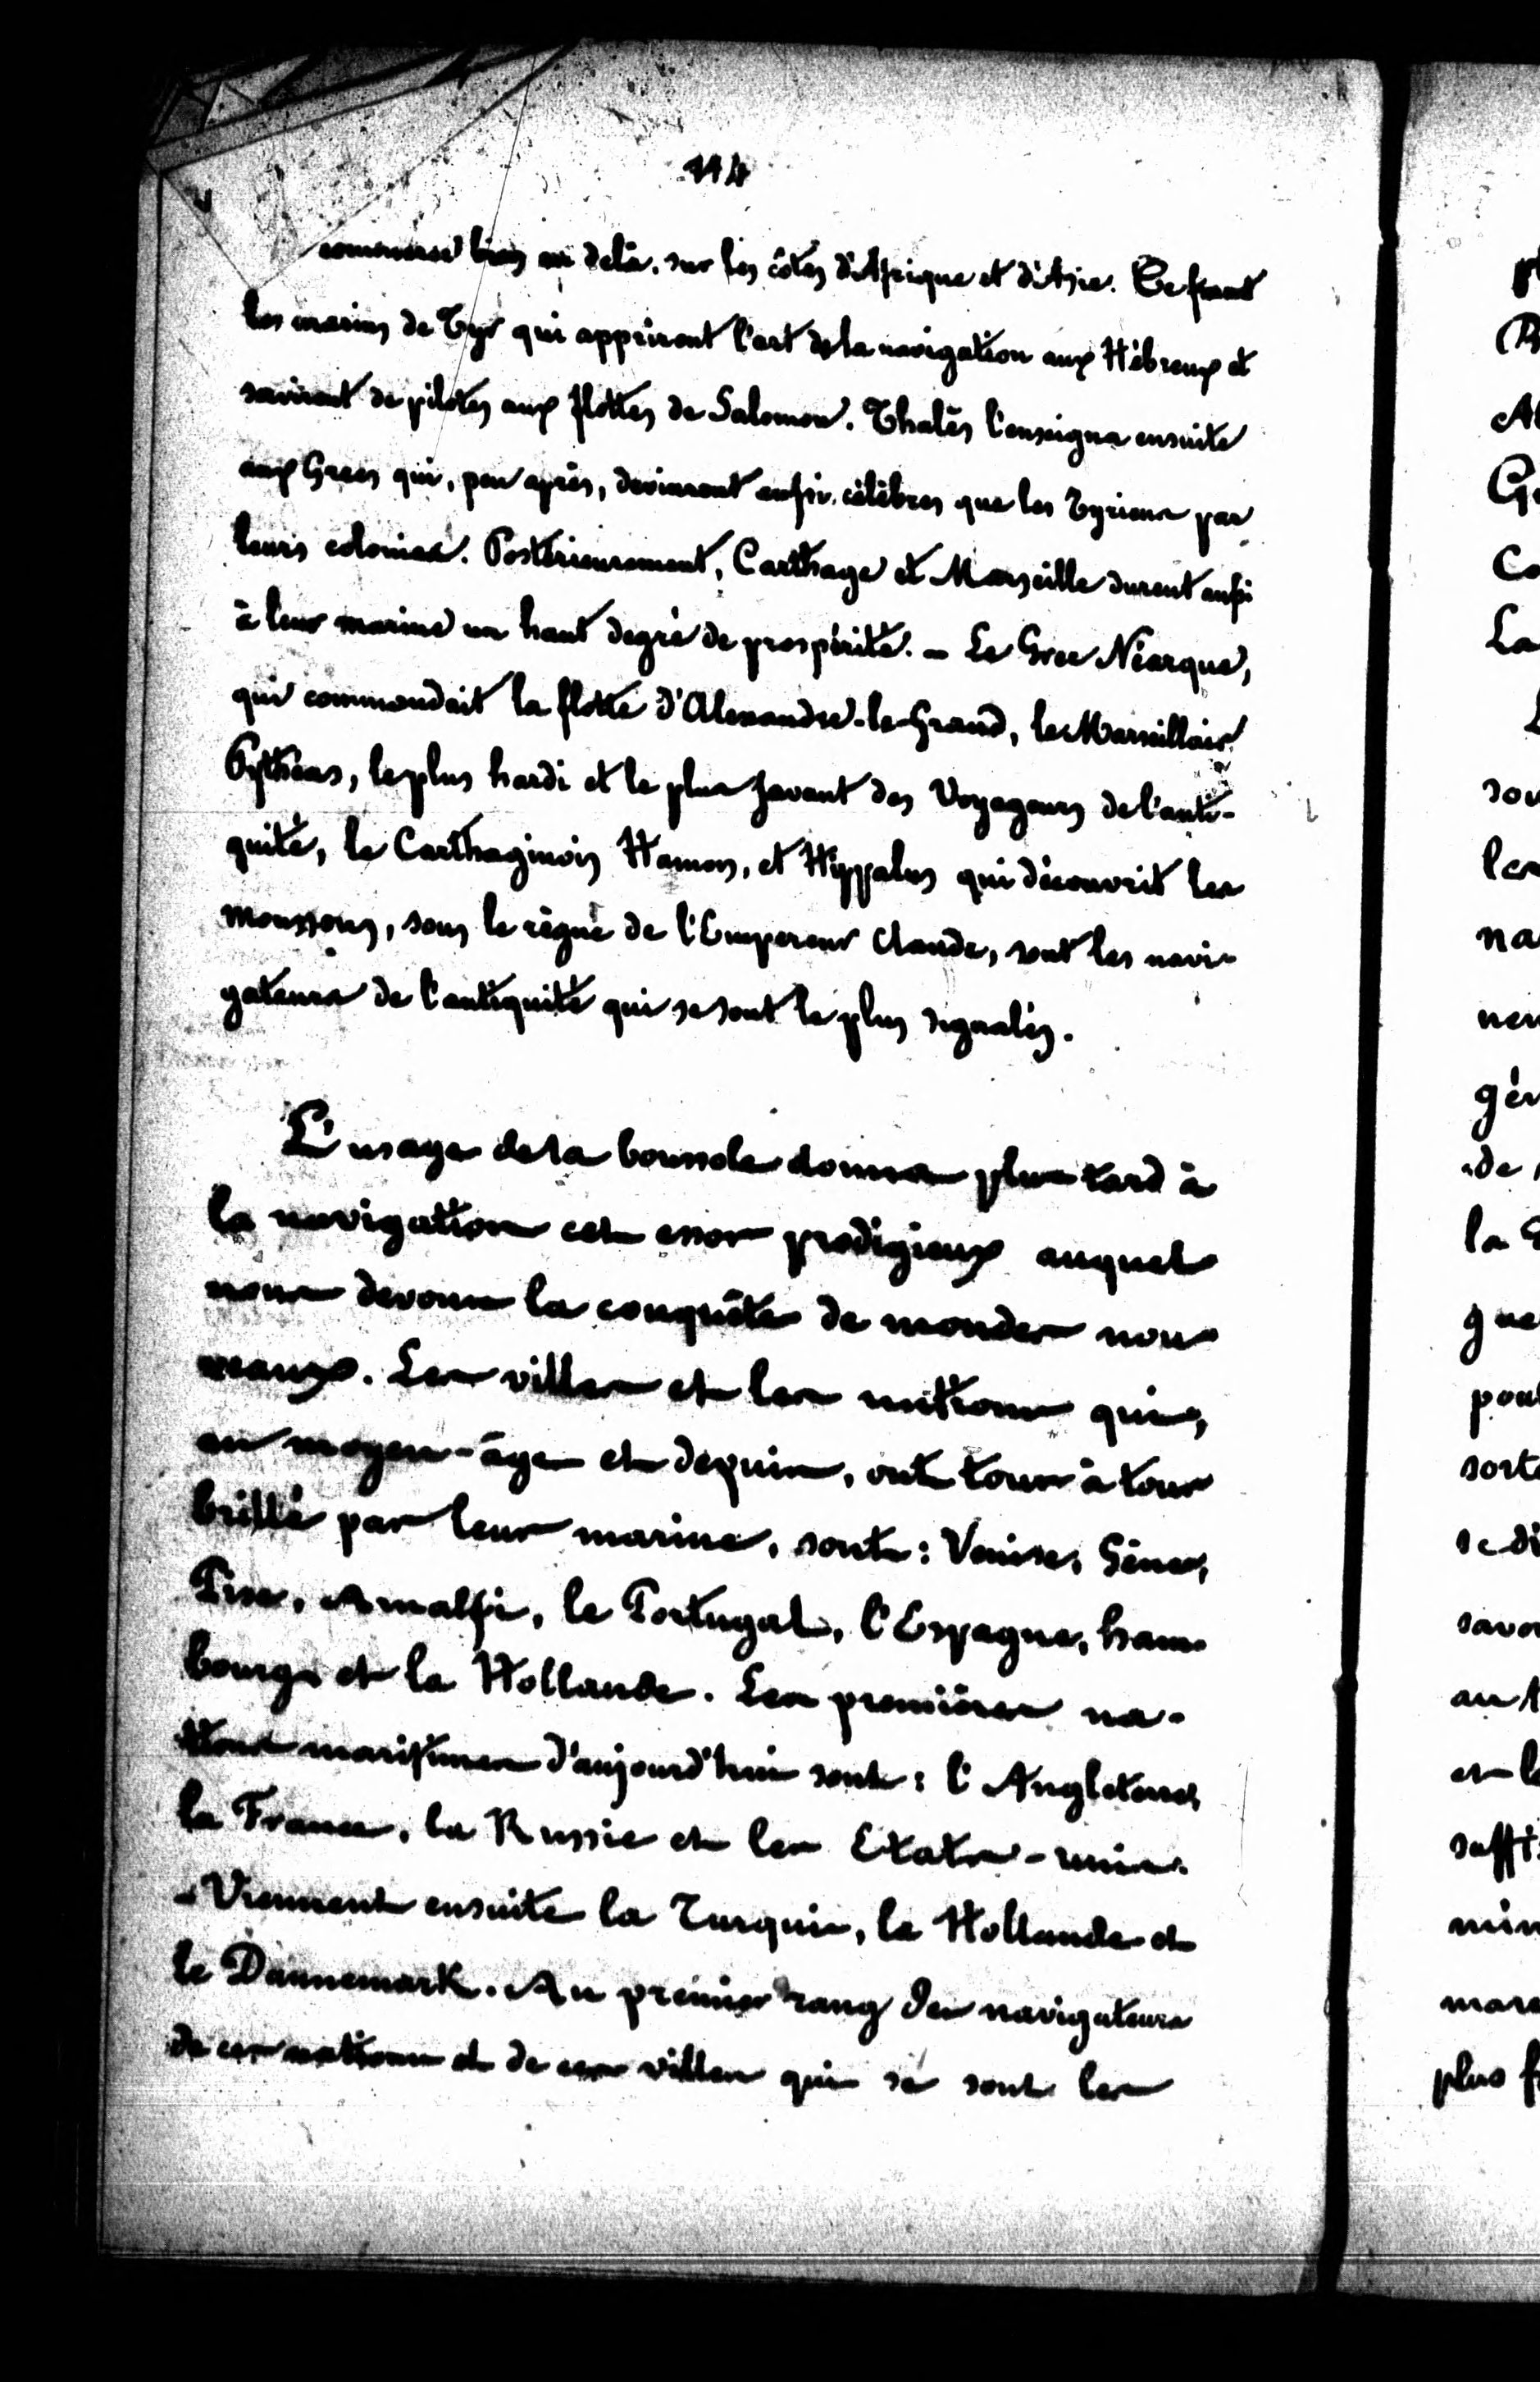 114
commerce bien au delà, sur les côtes d'Afrique et d'Asie. Ce furent
les marins de Tyr qui apprirent l'art de la navigation aux Hébreux et
servirent de pilotes aux flottes de Salomon. Thalès l'enseigna ensuite
aux Grecs qui, peu après, devinrent aussi célèbres que les Tyriens par
leurs colonies. Postérieurement, Carthage et Marseille durent aussi
à leur marine un haut degré de prospérité. – Le Grec Néarque,
qui commandait la flotte d'Alexandre-le-Grand, le Marseillais
Pythéas, le plus hardi et le plus savant des Voyageurs de l'anti-
quité, le Carthaginois Hannon, et Hippalus qui découvrit les
moussons, sous le règne de l'Empereur Claude, sont les navi-
gateurs de l'antiquité qui se sont le plus signalés.
L'usage de la boussole donna plus tard à
la navigation cet essor prodigieux auquel
nous devons la conquête de mondes nou-
veaux. Les villes et les nations qui,
au moyen-âge et depuis, ont tour à tour
brillé par leur marine, sont: Venise, Gênes,
Pise, Amalfi, le Portugal, l'Espagne, ham-
bourg et la Hollande. Les premières na-
tions maritimes d'aujourd'hui sont: l'Angleterre,
la France, la Russie et les Etats-unis.
– Viennent ensuite la Turquie, la Hollande et
le Dannemark. Au premier rang des navigateurs
de ces nations et de ces villes qui se sont les